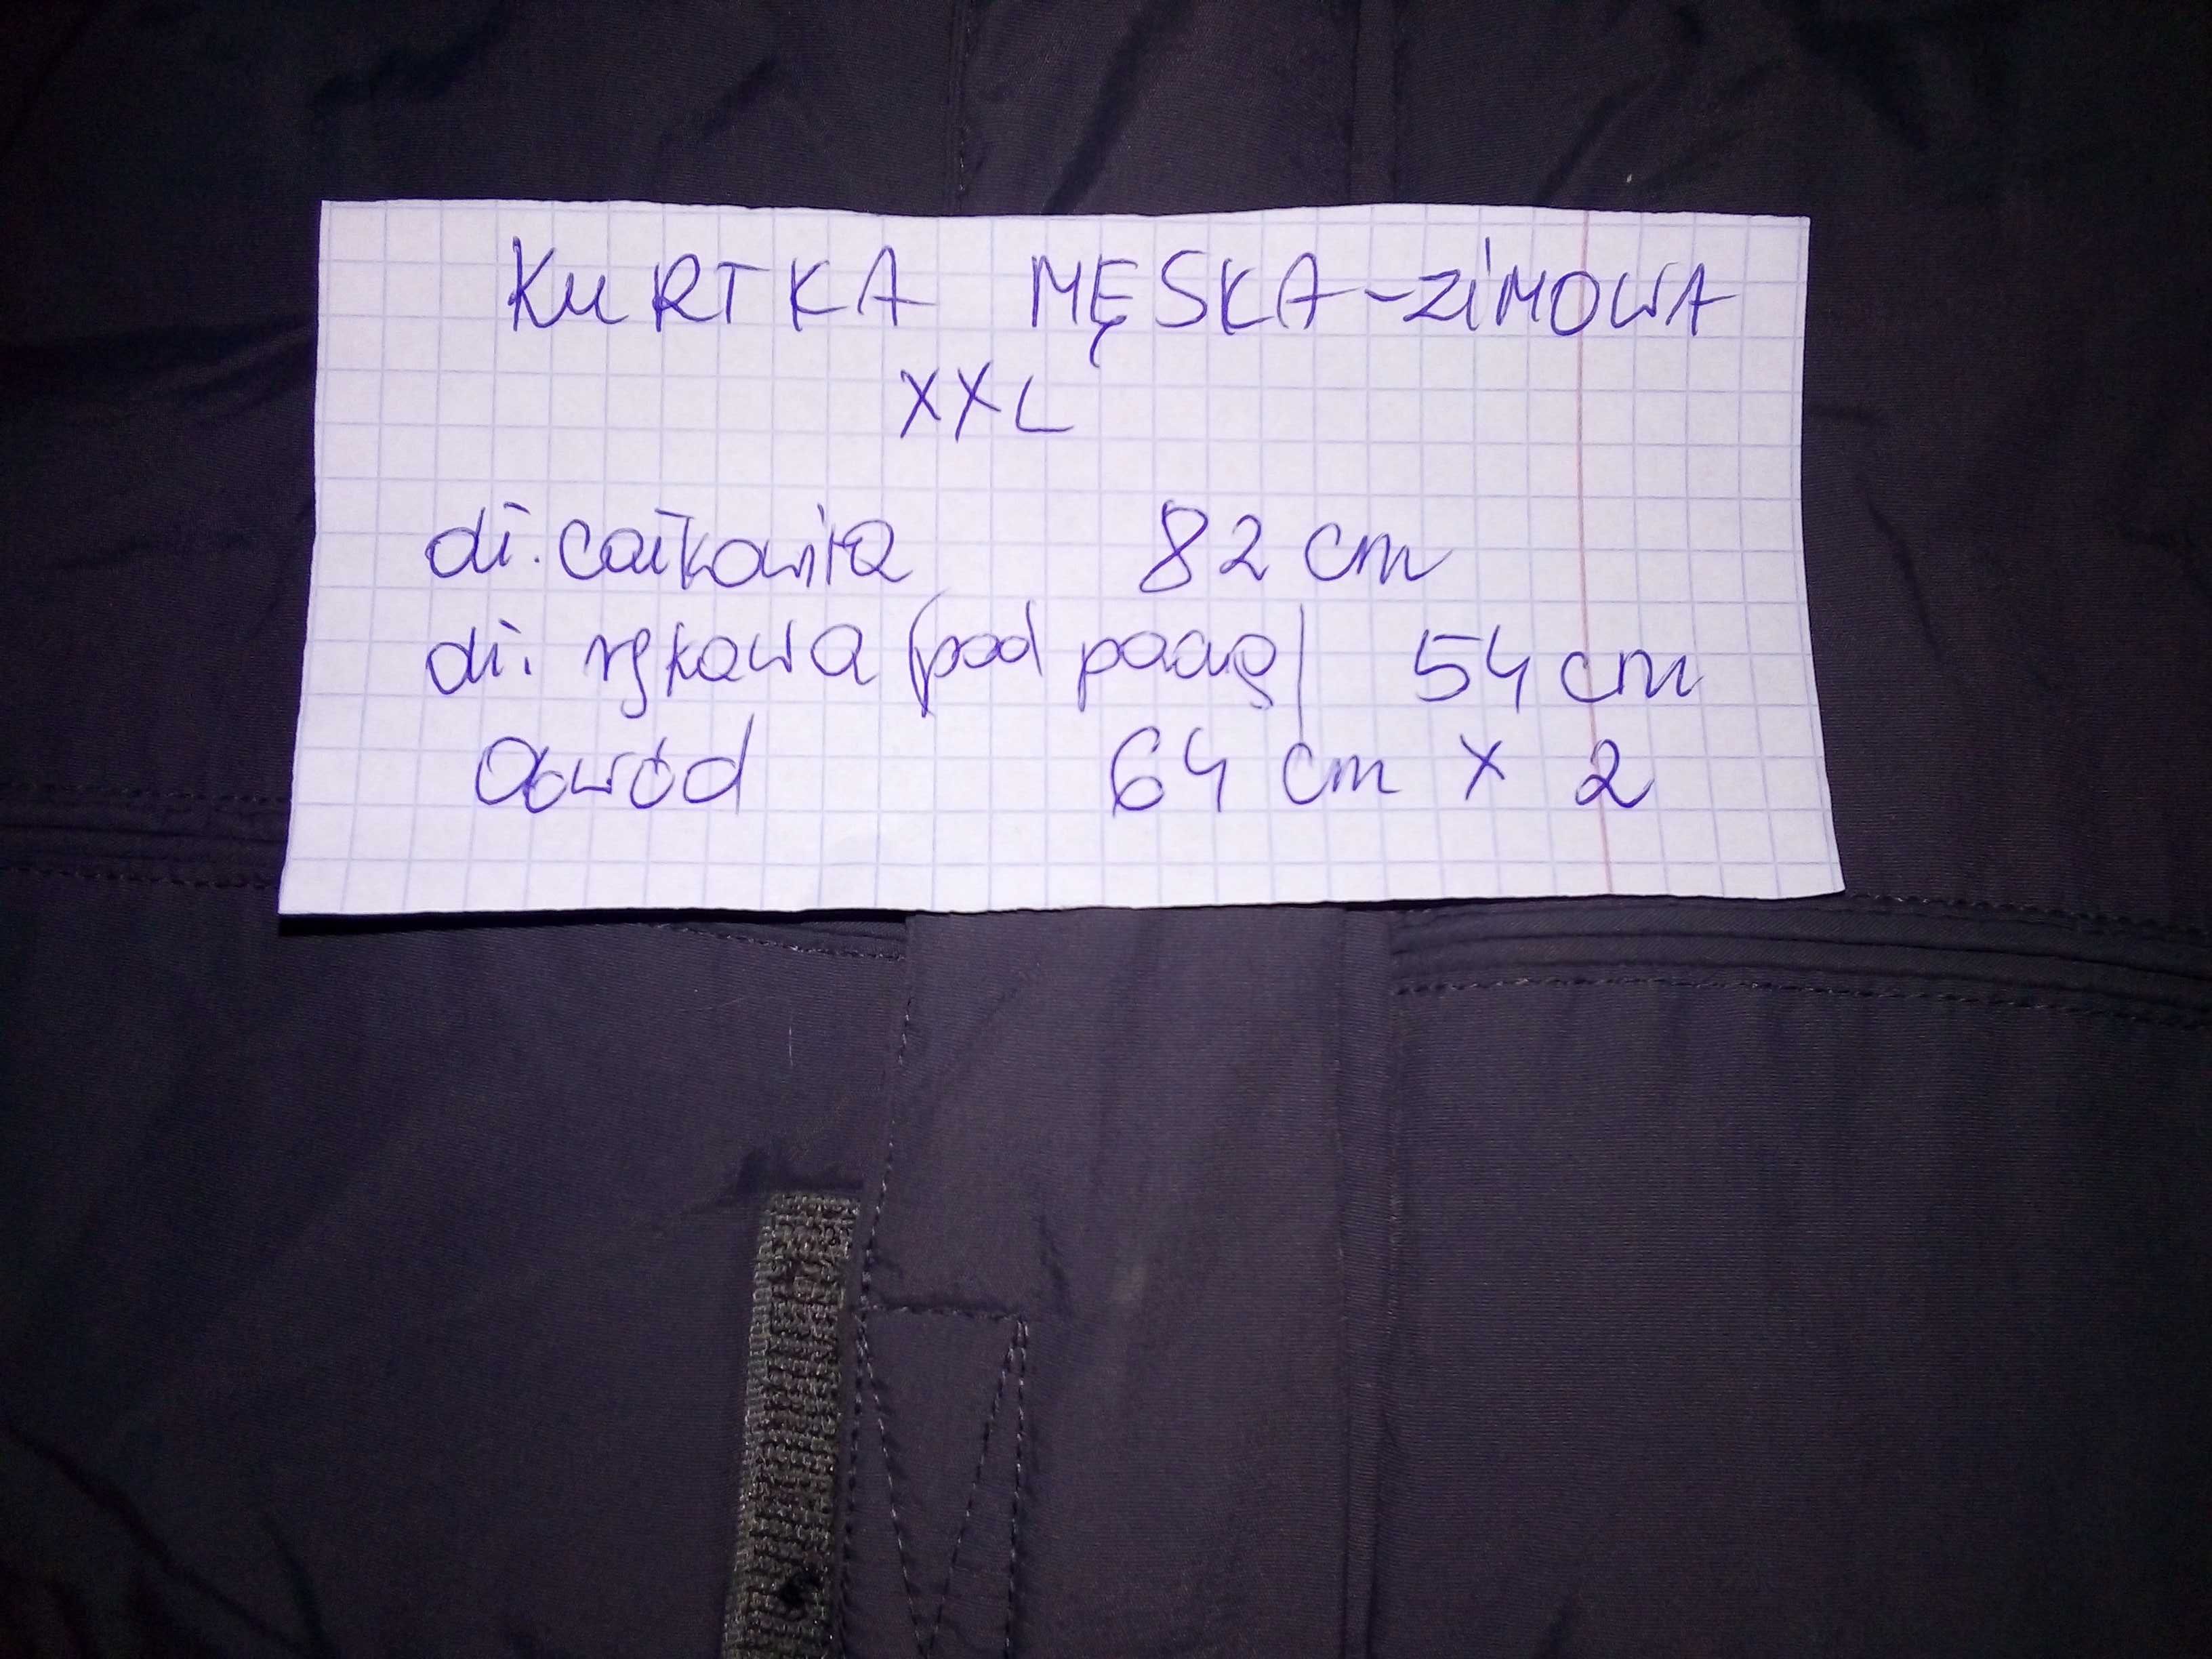 KURTKA MĘSKA-ZIMOWA
XXL
dł. całkowita 82 cm
dł. rękawa (pod pachą) 54 cm
Obwód 64 cm x 2